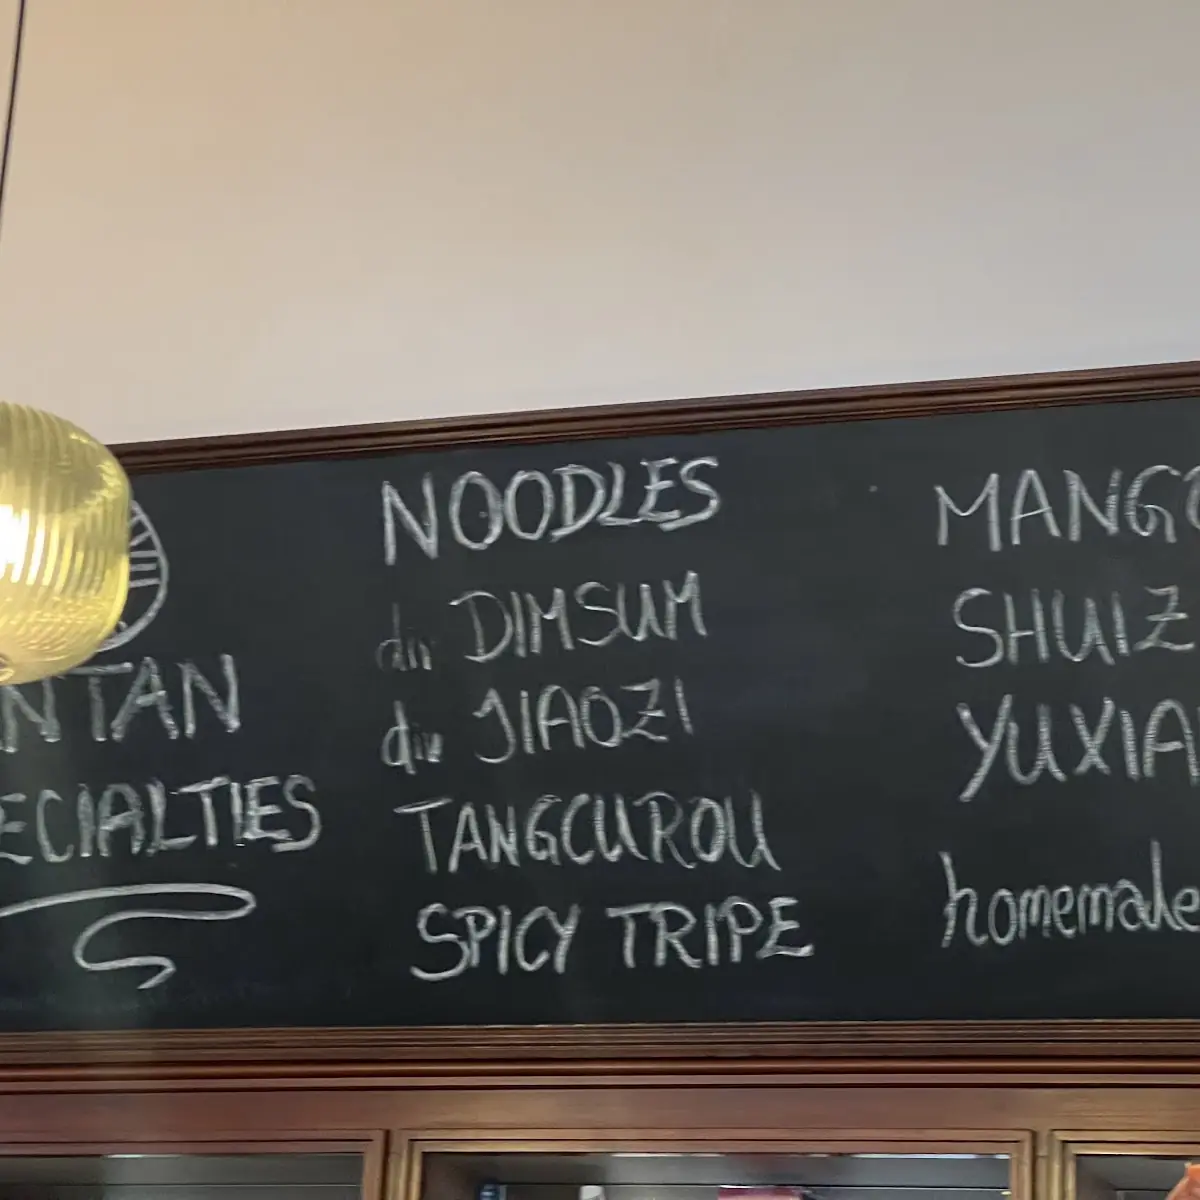 NTAN
ECIALTIES
NOODLES
div DIMSUM
div JIAOZI
TANGCUROU
SPICY TRIPE
MANGO
SHUIZ
YUXIA
homemade